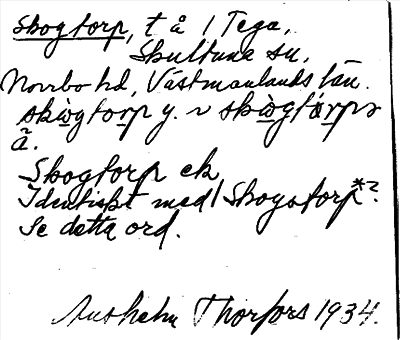 Skogtorp, t å / Tega,
Skultuna sn,
Norrbo hd, Västmanlands län.
skògtorp y. ~ skògtårp ~
ã.
Skogtorp ek
Identiskt med / Skogstorp*?.
Se detta ord.
Thorfors 1934.